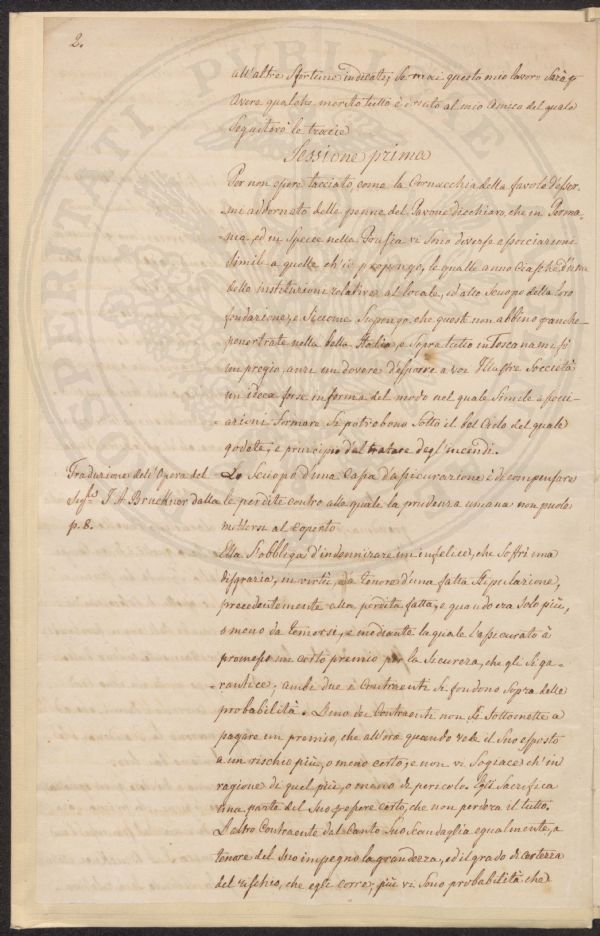 2.
all'altre sfortune indicate; Se mai questo mio lavoro sarà p
avere qualche merito tutto è dovuto al mio Amico del quale
Seguiterò le traccie
Sessione prima
Per non essere tacciato come la Cornacchia della favola d'esser=
=mi addornato delle penne del Pavone dicchiaro, che in Germa=
=nia, ed in Specie nella Prussia vi sono diverse associazioni
Simile a quelle ch'io propongo, le qualle anno ciascheduna
delle instituzioni relative al locale, ed allo Scuopo della loro
fondazione, e Siccome Supongo che queste non abbino granche
penertrate nella bella Italia, e Sopra tutto in Toscana mi fò
un pregio, anzi un dovere d'esporre a voi Illustre Soccietà
un idea forse informa del modo nel quale Simile associ=
=azioni formare Si potrobono Sotto il bel Cielo del quale
godete, e principio dal trattare degl'incendi.
Traduzione dell'Opera del
Sigre J. A. Bruckner dalla
p. 8.
Lo Scuopo d'una Cassa d'assicurazione è di compensare
le perdite contro alle quale la prudenza umana non puole
mettersi al coperto
Ella s'obbliga d'indennizare un infelice, che soffri una
disgrazia, in virtù, ed a tenore d'una fatta Stipulazione,
precedentemente alla perdita fatta, e quando era solo più,
o meno da temersi, e mediante la quale l'assicurato à
promesso un certo premio per la Sicureza, che gli si ga=
=rantice; ambi due i Contraenti si fondono sopra delle
probabilità. L'uno dei Contraenti non si sottomette a
pagare un premio, che all'ora quando vede il Suo esposto
a un rischio più, o meno certo; e non vi sogiace ch'in
ragione di quel più, o meno di pericolo. Egli Sacrifica
una parte del Suo p essere certo, che non perdera il tutto.
L'altro Contraente dal Canto Suo Scandaglia egualmente, a
tenore del Suo impegno la grandezza, ed il grado di certezza
del rischio, che egli corre; più vi sono probabilità che
PROSPERITATI PUBLICAE